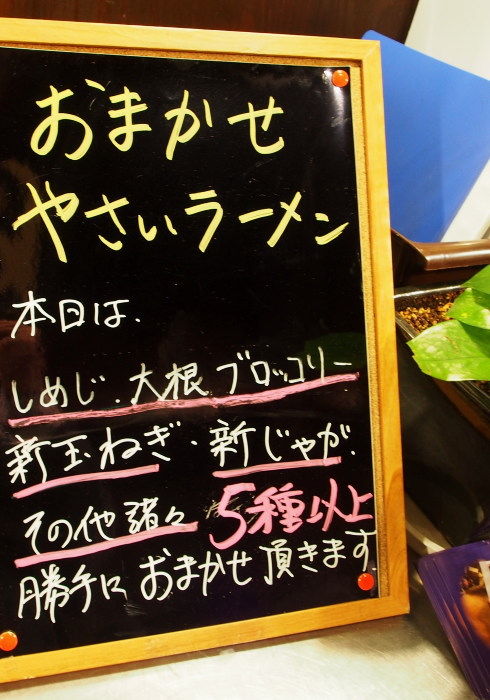 おまかせ
やさいラーメン
本日は、
しめじ、大根ブロッコリー
新玉ねぎ・新じゃが、
その他諸々 5種以上
勝手におまかせ頂きます